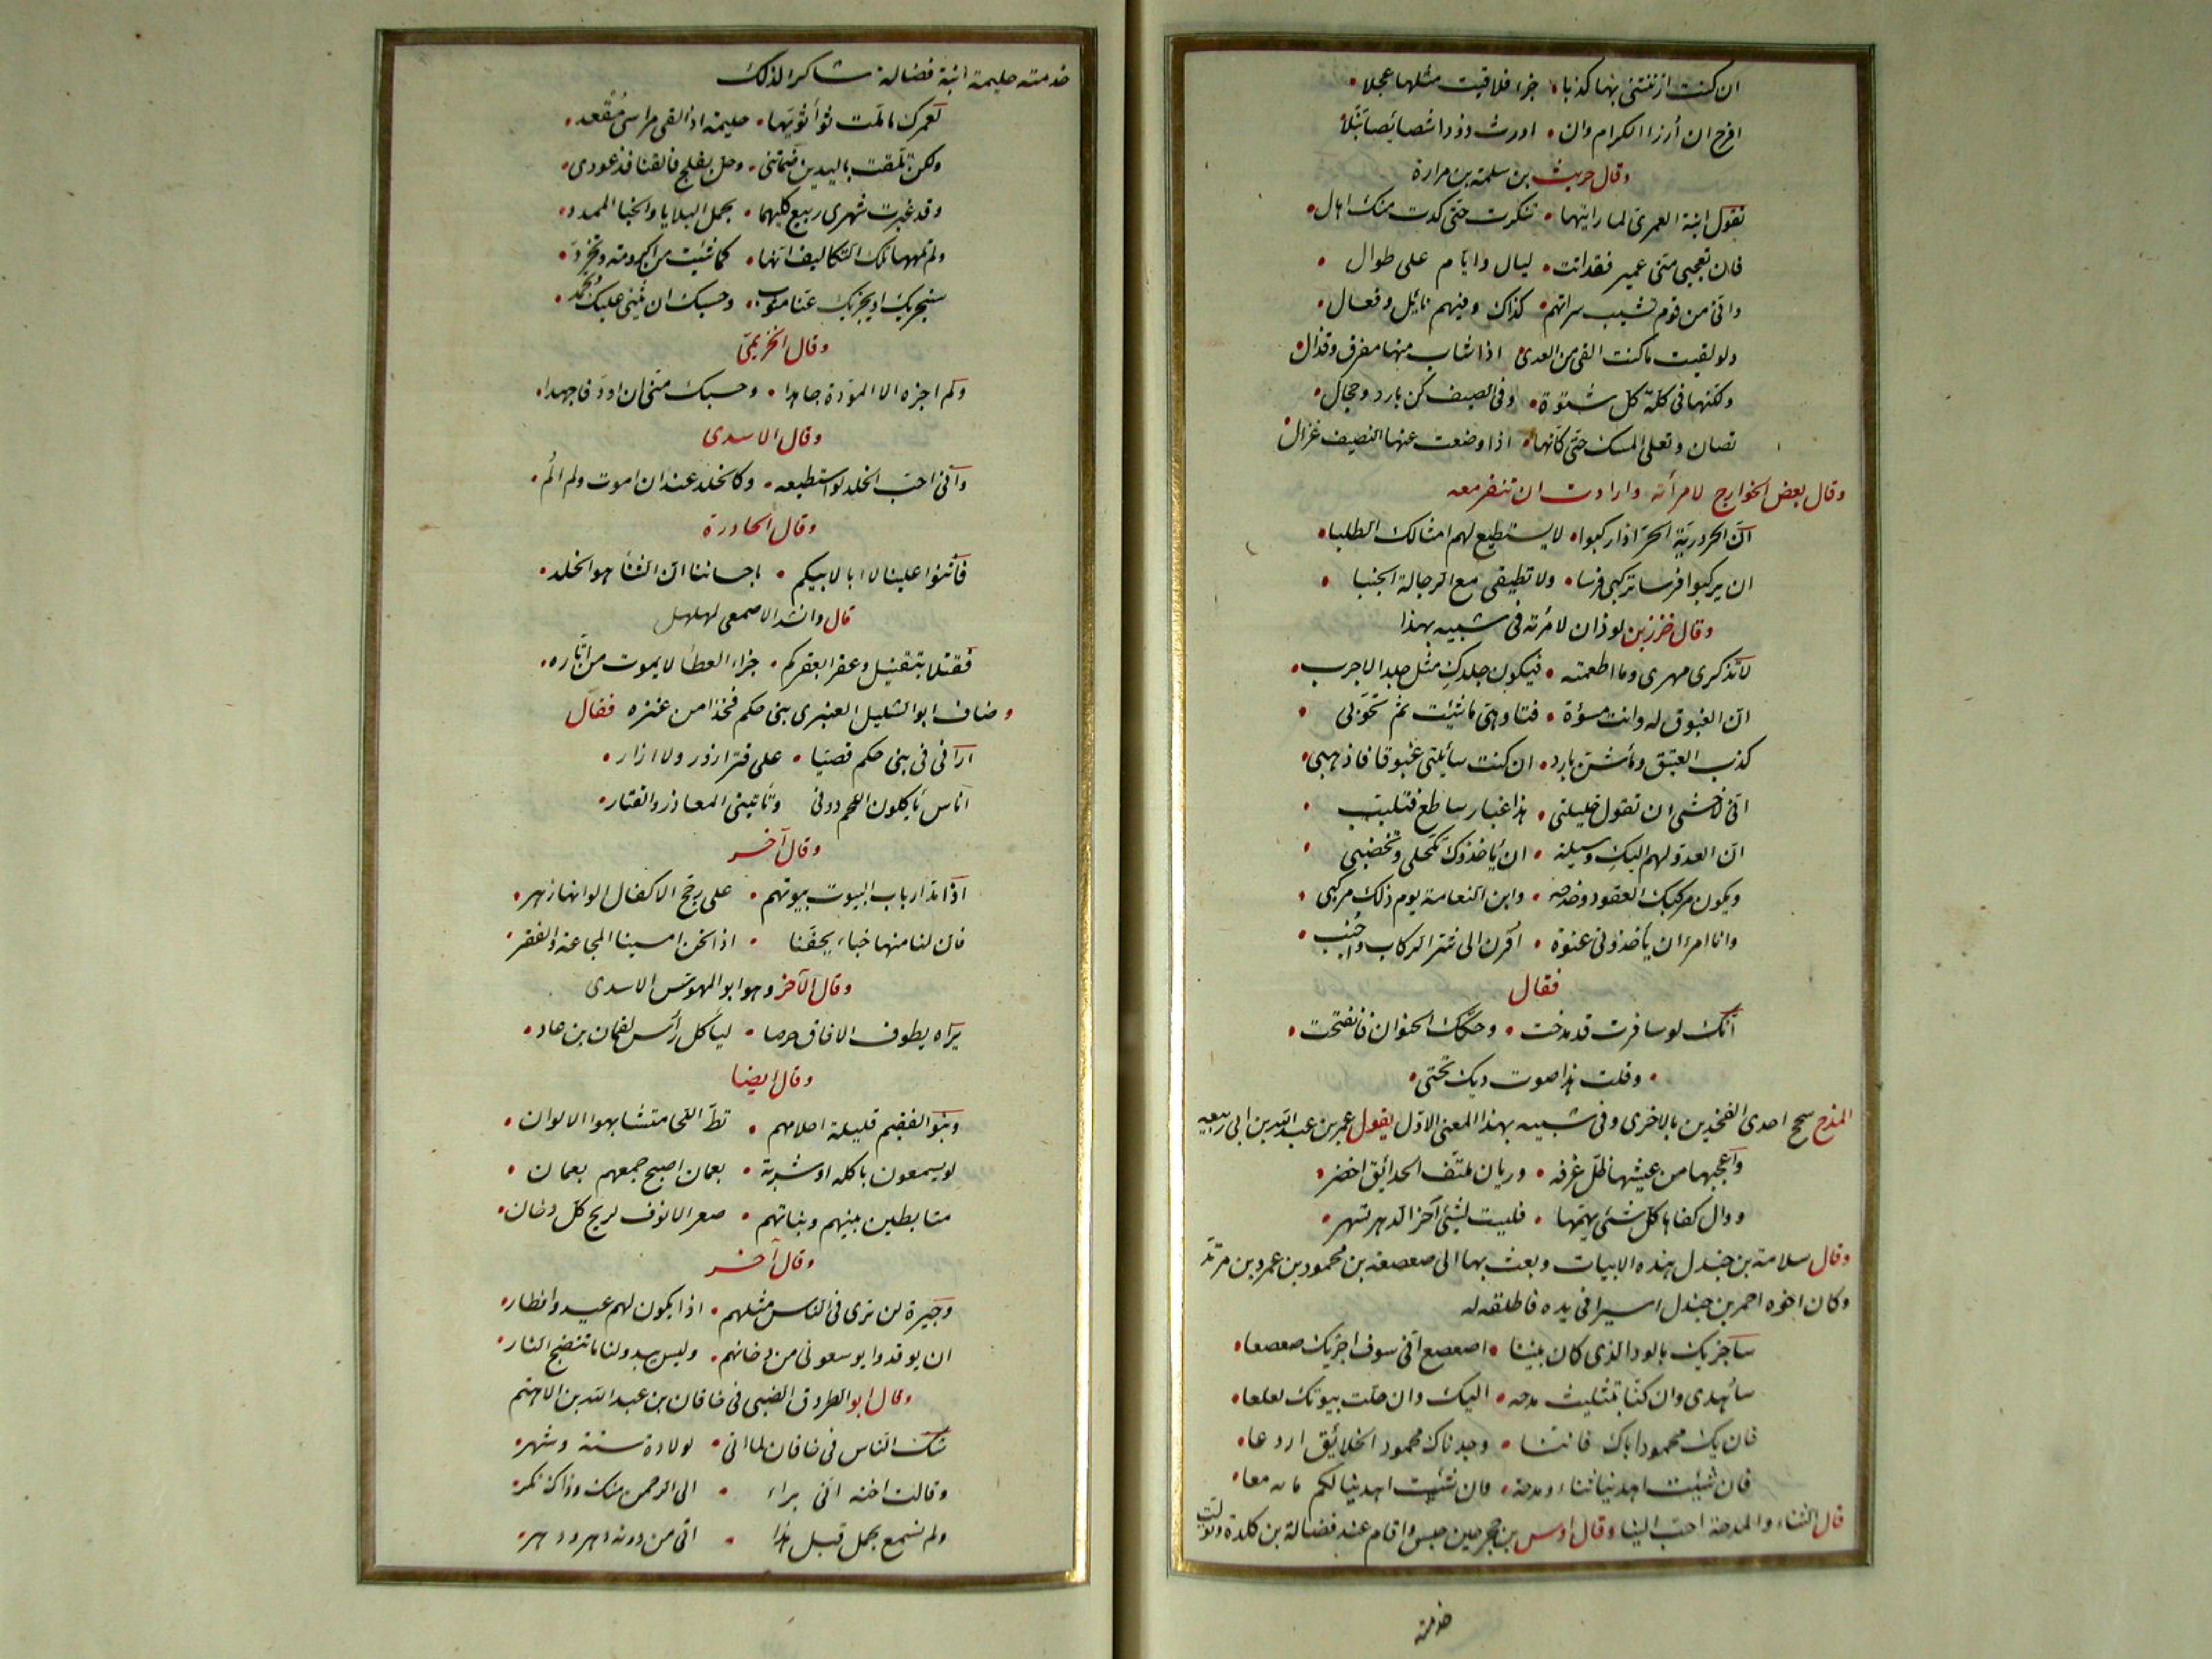 ان كنت ازننتنى بها كذبا • جزء فلاقيت مثلها عجلا •
افرح ان أرزا الكرام وان • اورث ذودا شصايصا نبلا
وقال حريث بن سلمة بن مرارة
تقول ابنة العمرى لما رايتها • تنكرت حتى كدت منك اهال •
فان تعجبى منى عمير فقد اتت • ليال وايام على طوال •
وانى من قوم تشيب سراتهم • كذاك وفيهم نائل وفعال •
ولو لقيت ما كنت القى من العدى • اذا شاب منها مفرق وقذال •
ولكنها فى كلة كل شتوة • وفى الصيف كن بارد وحجال •
تصان وتعلى المسك حتى كانها • اذا وضعت عنها النصيف غزال
وقال بعض الخوارج لامرأته وارادت ان تنفر معه
ان الحرورية الحرى اذا ركبوا • لا يستطيع لهم امثالك الطلبا •
ان يركبوا فرسا تركبى فرسا • ولا تطيقى مع الرجالة الجنبا •
وقال خزز بن لوذان لامرأته فى شبيه بهذا
لا تذكرى مهرى وما اطعمته • فيكون جلدك مثل جلد الاجرب •
ان الغبوق له وانت مسوءة • فتاوهى ما شئت ثم تحوبى •
كذب العتيق وماء شن بارد • ان كنت سائلتى غبوقا فاذهبى •
انى لاخشى ان تقول خليلتى • هذا غبار ساطع فتلبب •
ان العدو لهم اليك وسيلة • ان يأخذوك تكحلى وتخضبى •
ويكون مركبك القعود وحدجه • وابن النعامة يوم ذلك مركبى •
وانا امرء ان يأخذونى عنوة • اقرن الى شر الركاب واجنب •
فقال
انك لو سافرت قد مذحت • وحكك الحنوان فانفتحت •
• وقلت هذا صوت ديك تحتى •
المذح سحج احدى الفخذين بالاخرى وفى شبيه بهذا المعنى الاول يقول عمر بن عبد الله بن ابى ربيعه
واعجبها من عيشها ظل غرفه • وريان ملتف الحدائق اخضر •
ووال كفاها كل شئ يهمها • فليست لشئ آخر الدهر تسهر •
وقال سلامة بن جندل هذه الابيات وبعث بها الى صعصعه بن محمود بن عمرو بن مرثد
وكان اخوه احمر بن جندل اسيرا فى يده فاطلقه له
ساجزيك بالود الذى كان بيننا • اصعصع انى سوف اجزيك صعصعا •
سأهدى وان كنا بتثليث مدحه • اليك وان حلت بيوتك لعلعا •
فان يك محمود اباك فاننا • وجدناك محمود الخلائق اروعا •
فان شئت اهدينا ثناء ومدحة • وان شئت اهدينا لكم مائة معا •
قال الثناء والمدحة احب الينا وقال اوس بن حجر حين حبس واقام عند فضالة بن كلدة وتولت
خدمته
خدمته حليمة ابنة فضالة شاكرا لذلك
لعمرك ما ملت ثواء ثويها • حليمة اذ القى مراسى مقعد •
ولكن تلقت باليدين ضمانتى • وحل بفلج فالقنافذ عودى •
وقد غبرت شهرى ربيع كليهما • بحمل البلايا والخباء الممدد •
ولم تلهها تلك التكاليف انها • كما شئت من اكرومة وتخرد •
سنجزيك او يجزيك عنا مثوب • وحسبك ان يثنى عليك وتحمد •
وقال الخزيمى
ولم اجزه الا المودة جاهدا • وحسبك منى ان اود فاجهدا •
وقال الاسدى
وانى احب الخلد لو استطيعه • وكالخلد عند ان اموت ولم الم •
وقال الحادرة
فاثنوا علينا لا ابا لابيكم • باحساننا ان الثناء هو الخلد •
قال وانشد الاصمعى لمهلهل
فقتلا بتقتيل وعقرا بعقركم • جزاء العطاء لا يموت من اثاره •
وضاف ابو الشليل العنبرى بنى حكم فخذا من عنزه فقال
ارانى فى بنى حكم قصيا • على قتر ازور ولا ازار •
اناس يأكلون اللحم دونى وتأتينى المعاذر والقتار •
وقال آخر
اذا مد ارباب البيوت بيوتهم • على رجح الاكفال الوانها زهر •
فان لنا منها خباء يحفنا • اذا نحن امسينا المجاعة والفقر •
وقال الآخر وهو ابو المهوش الاسدى
يراه يطوف الافاق حرصا • ليأكل رأس لقمان بن عاد •
وقال ايضا
وبنو الفقيم قليلة احلامهم • ثط اللحى متشابهوا الالوان •
لو يسمعون باكله او شربة • بعمان اصبح جمعهم بعمان •
متابطين بنيهم وبناتهم • صعر الانوف لريح كل دخان •
وقال آخر
وجيرة لن ترى فى الناس مثلهم • اذا يكون لهم عيد وافطار •
ان يوقدوا يوسعونى من دخانهم • وليس يبدو لنا ما تنضج النار •
وقال ابو الطروق الضبى فى خاقان بن عبد الله بن الاهتم
شك الناس فى خاقان لما اتى • لولادة سنة وشهر •
وقالت اخته انى براء • الى الرحمن منك وذاك نكر •
ولم نسمع بحمل قبل هذا • اتى من دونه دهر ودهر •